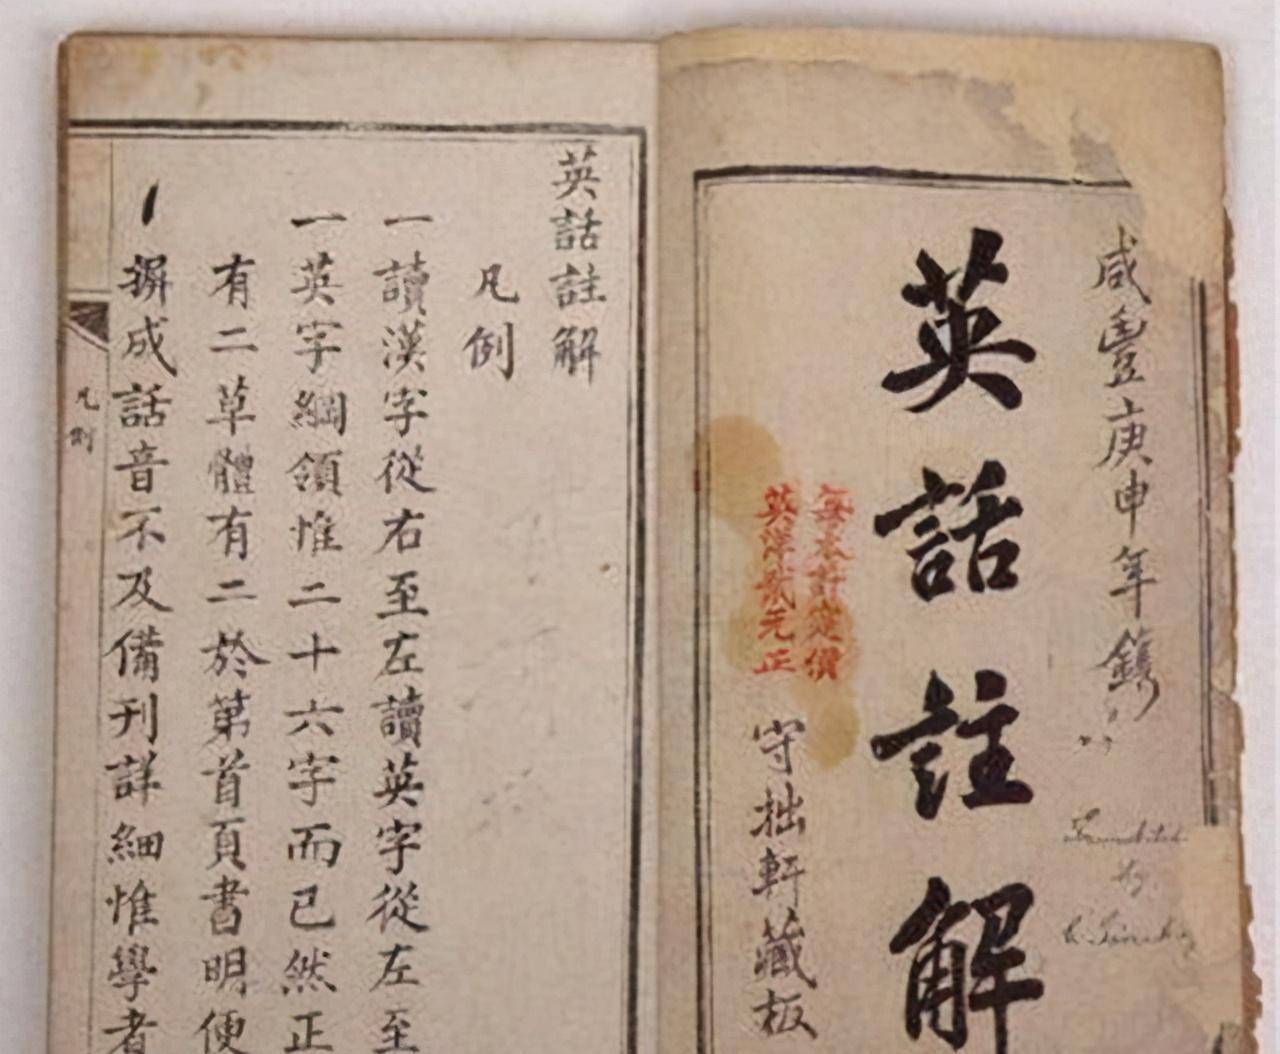 咸豐庚申年鐫
英話註解
每本計定價
英洋貳元正
守拙軒藏板
英話註解
凡例
一讀漢字從右至左讀英字從左至
一英字綱領惟二十六字而已然正
有二草體有二於第首頁書明便
摒成話音不及備刊詳細惟學者
凡例